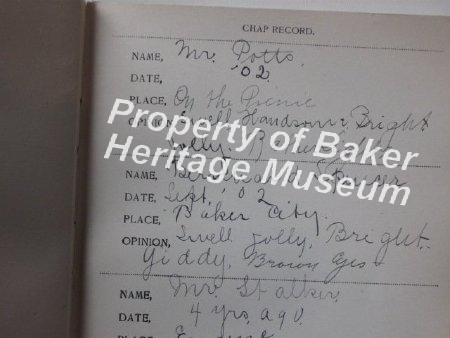 CHAP RECORD.
NAME, Mr. Potts.
DATE, '02
PLACE, On the Picnic
OPINION, Swell Handsome Bright
Jolly.
Property of Baker
Heritage Museum
NAME,
DATE, Sept, '02
PLACE, Baker City.
OPINION, Swell Jolly, Bright.
Giddy, Brown Eyes
NAME, Mr. Stalker.
DATE, 4 yrs. ago.
PLACE, Eugene